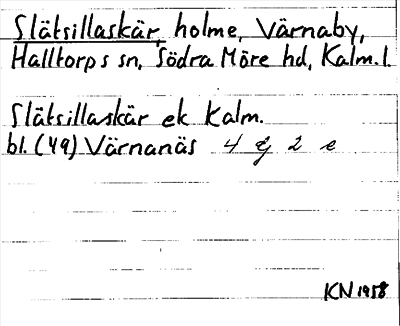 Slätsillaskär, holme, Värnaby,
Halltorps sn, Södra Möre hd, Kalm. l.
Slätsillaskär ek Kalm.
bl. (49) Värnanäs 4 g 2 e
KN 1958